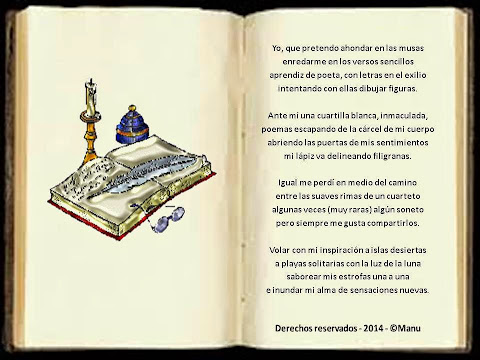 Yo, que pretendo ahondar en las musas
enredarme en los versos sencillos
aprendiz de poeta, con letras en el exilio
intentando con ellas dibujar figuras.
Ante mi una cuartilla blanca, inmaculada,
poemas escapando de la cárcel de mi cuerpo
abriendo las puertas de mis sentimientos
mi lápiz va delineando filigranas.
Igual me perdí en medio del camino
entre las suaves rimas de un cuarteto
algunas veces (muy raras) algún soneto
pero siempre me gusta compartirlos.
Volar con mi inspiración a islas desiertas
a playas solitarias con la luz de la luna
saborear mis estrofas una a una
e inundar mi alma de sensaciones nuevas.
Derechos reservados - 2014 - ©Manu